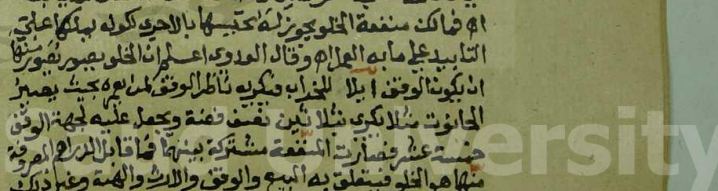 اه فمالك منفعة الخلو يجوز له تحبيسها بالاحرى لكونه يملكها على
التابيد على ما به العمل اه وقال العدوي اعلم ان الخلو يصور بصور منها
ان يكون الوقف ايلا للخراب فيكريه ناظر الوقف لمن يعمره بحيث يصير
الحانوت مثلا يكرى بثلاثين نصف فضة ويجعل عليه لجهة الوقف
خمسة عشر فصارت المنفعة مشتركة بينهما فما قابل الدراهم المصروفة
منها هو الخلو فيتعلق به البيع والوقف والارث والهبة وغير ذلك
ersity